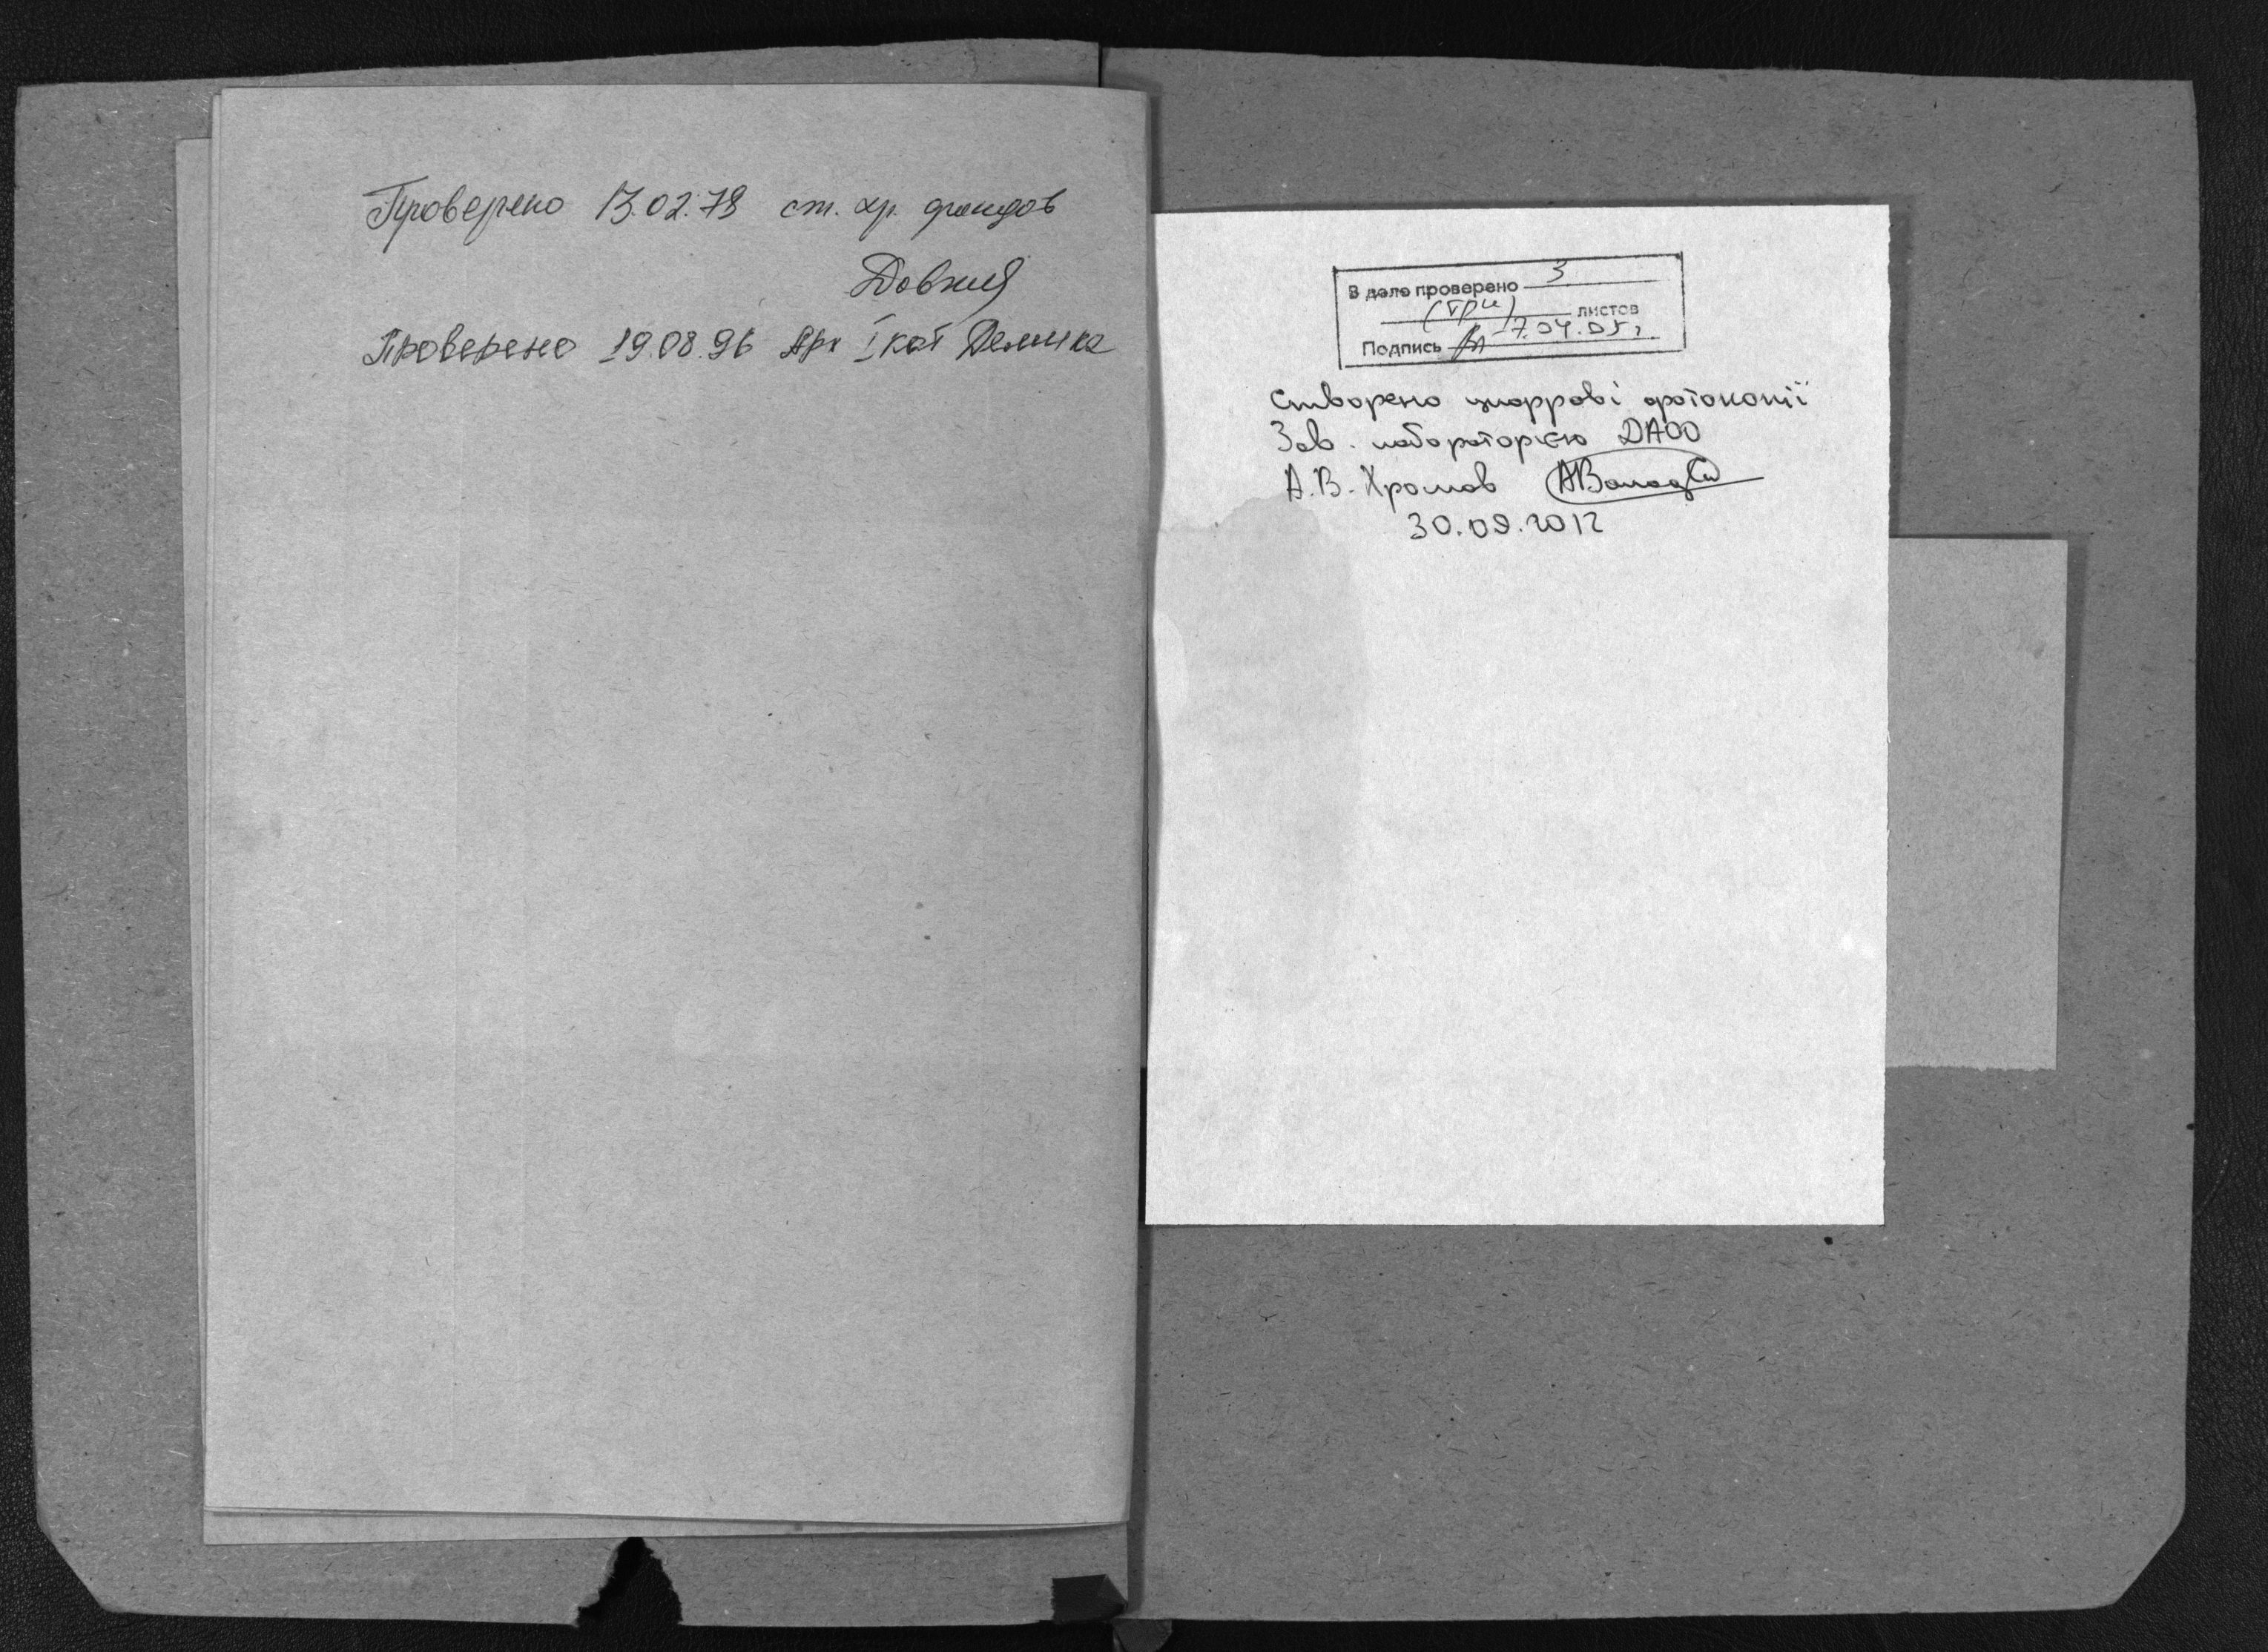 Проверено 13.02.78 ст. хр. фондов
Проверено 19.08.96 Арх I кат
В деле проверено 3
(три) листов
Подпись 7.04.05г.
Створено цифрові фотокопії
Зав. лабораторією ДАОО
А.В. Хромов
30.09.2012